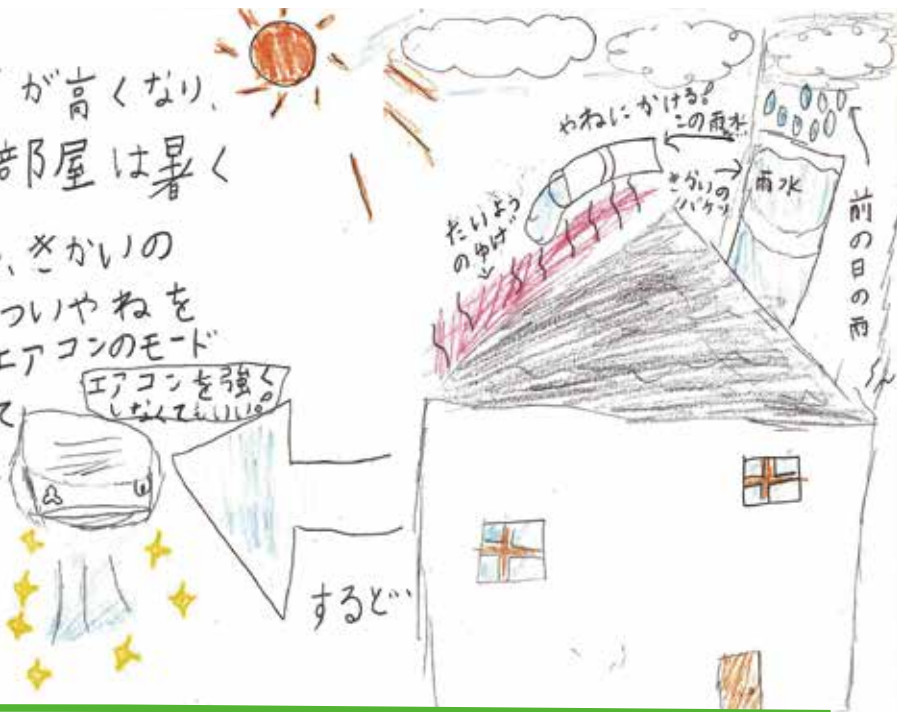 が高くなり、
部屋は暑く
、きかいの
ついやねを
エアコンのモード
て
エアコンを強く
しなくてもいい。
するど‥
やねにかける!
この雨水
きかいの
バケツ
雨水
前の日の雨
たいよう
のゆげ